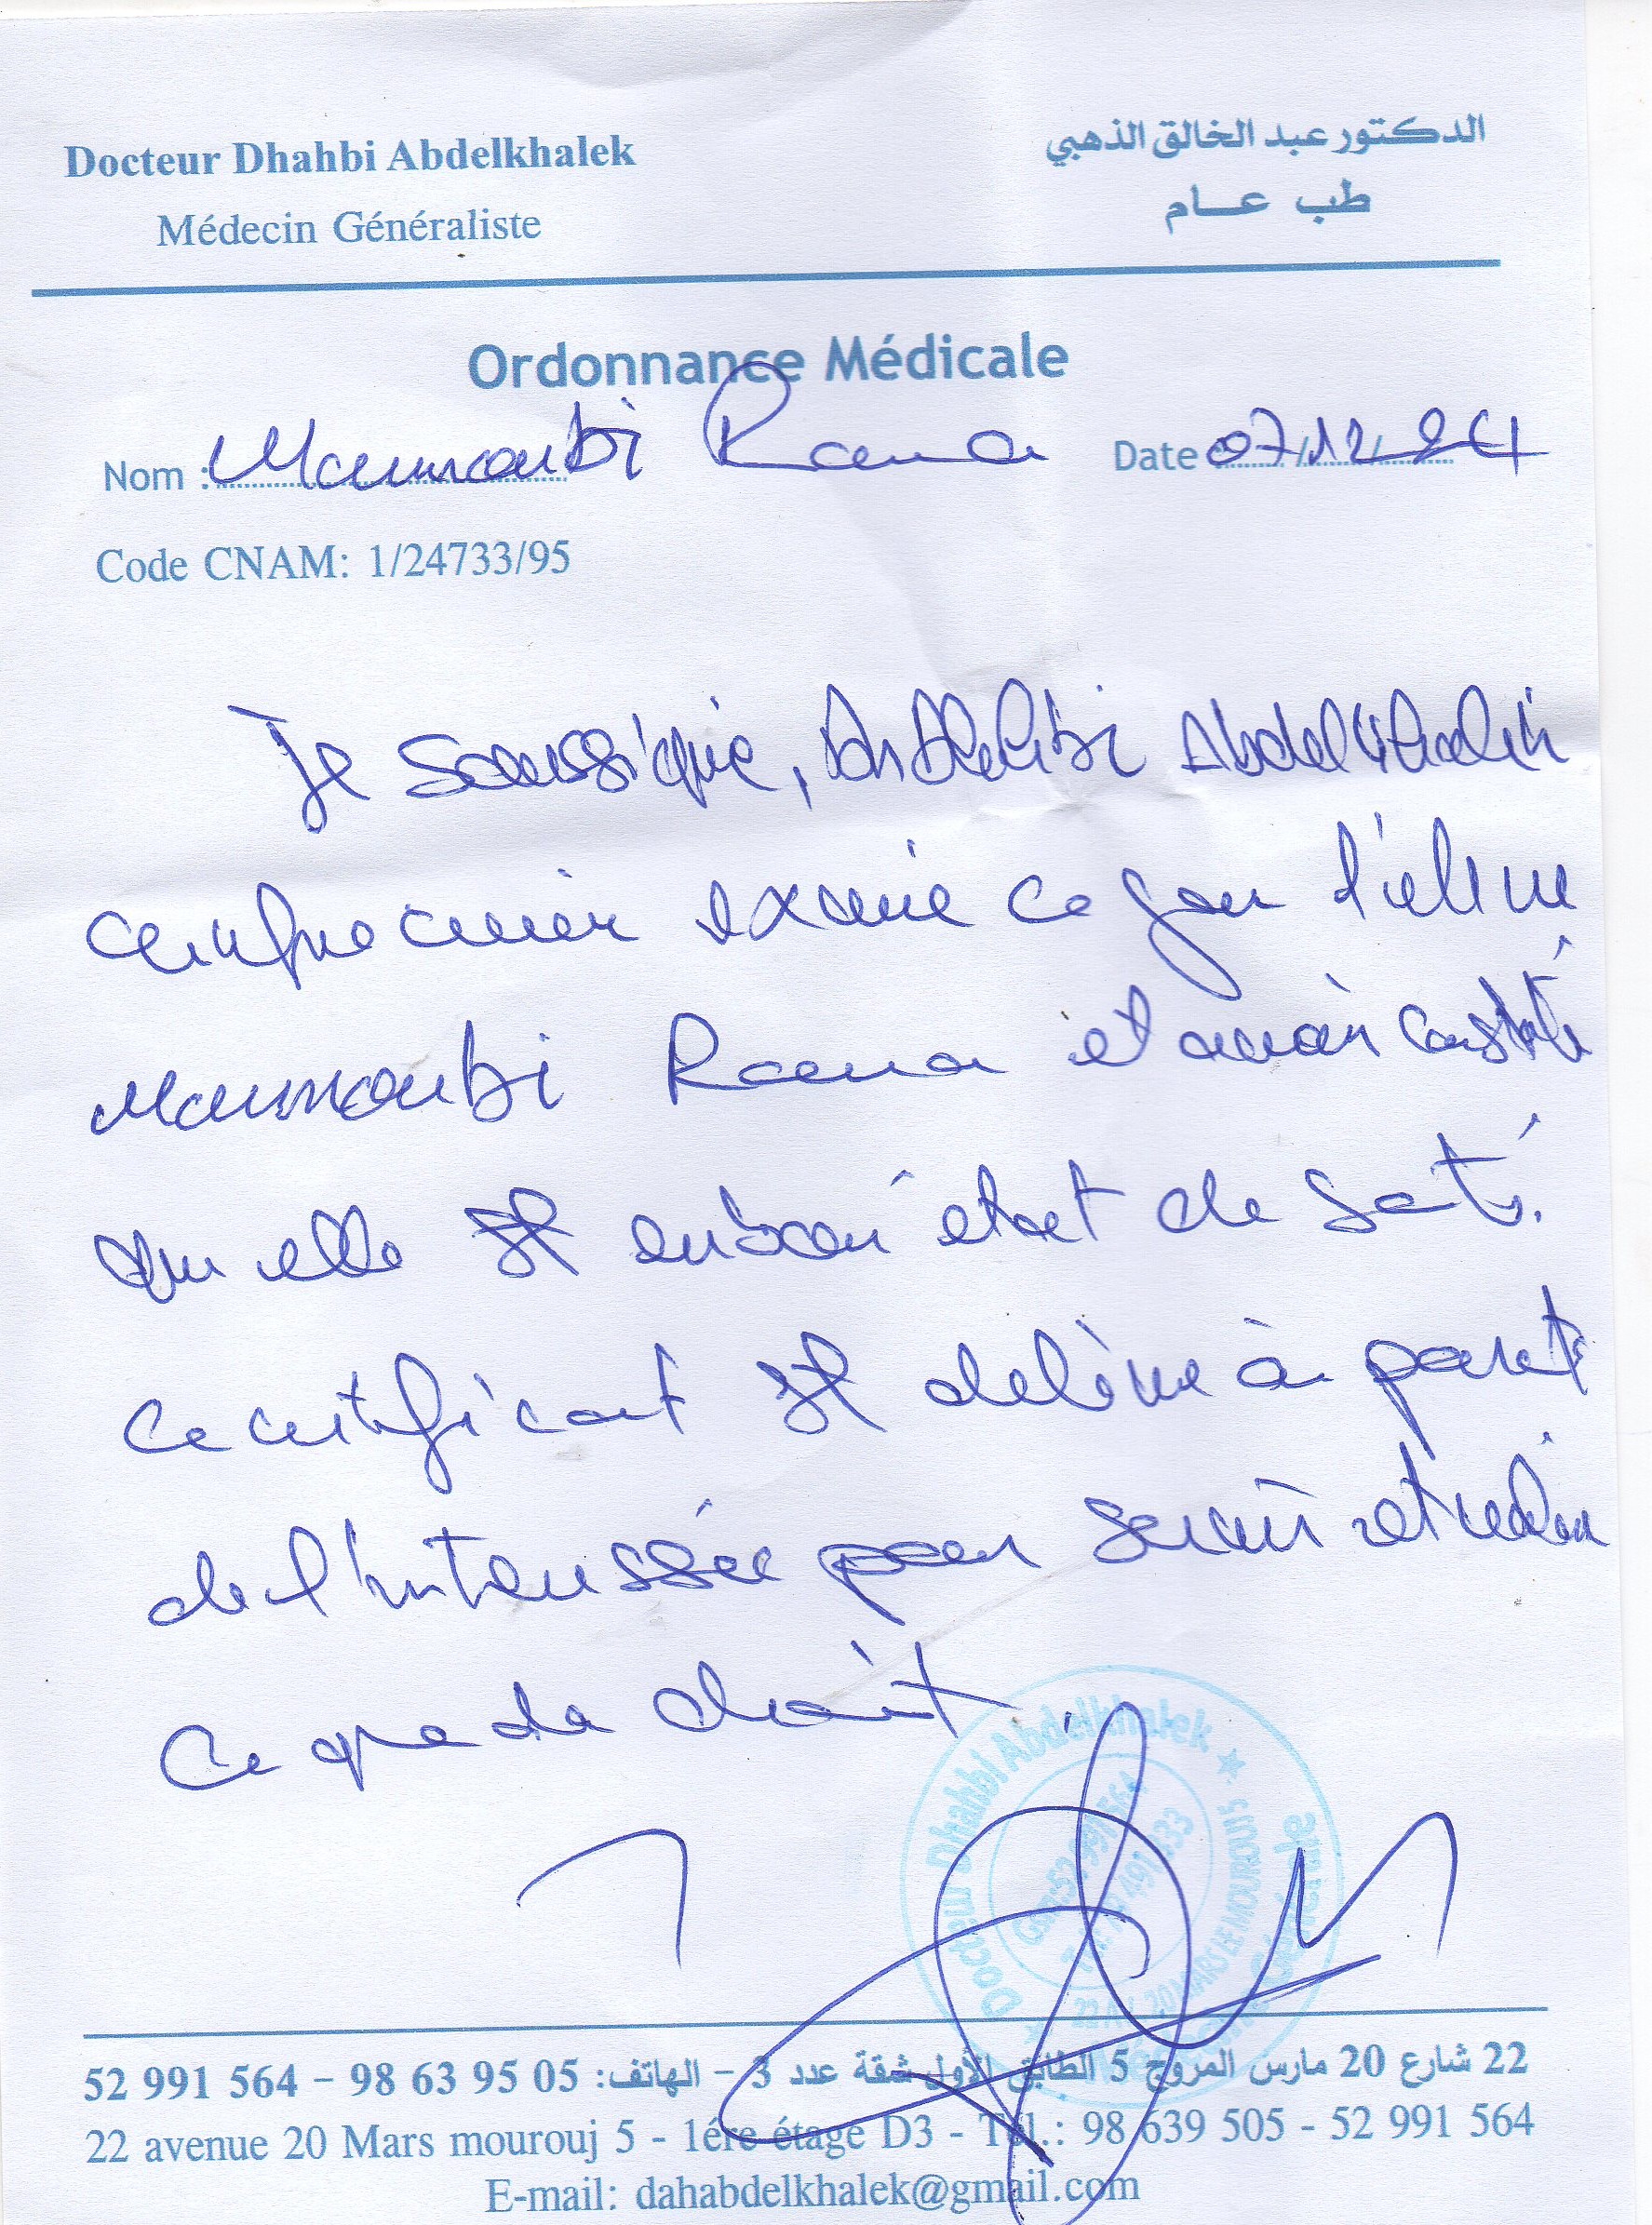 Docteur Dhahbi Abdelkhalek
الدكتور عبد الخالق الذهبي
Médecin Généraliste
طب عـــام
Ordonnance Médicale
Nom : Rana Date 07/12/24
Code CNAM: 1/24733/95
Je soussigné, Dr Dhahbi Abdelkhalek
certifie avoir examiné ce jour l'élève
Rana et avoir constaté
que elle est en bon état de santé.
Ce certificat est délivré à parents
de l'intéressée pour servir et valoir
ce que de droit.
Docteur Dhahbi Abdelkhalek ★
22 شارع 20 مارس المروج 5 الطابق الأول شقة عدد 3 – الهاتف: 05 95 63 98 – 564 991 52
22 avenue 20 Mars mourouj 5 - 1ére étage D3 - Tél.: 98 639 505 - 52 991 564
E-mail: dahabdelkhalek@gmail.com